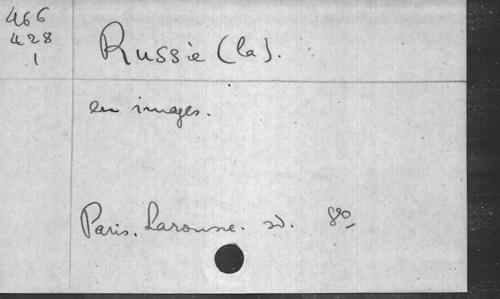 466
428
1
Russie (la).
en images.
Paris. Larousse. sd. 8º